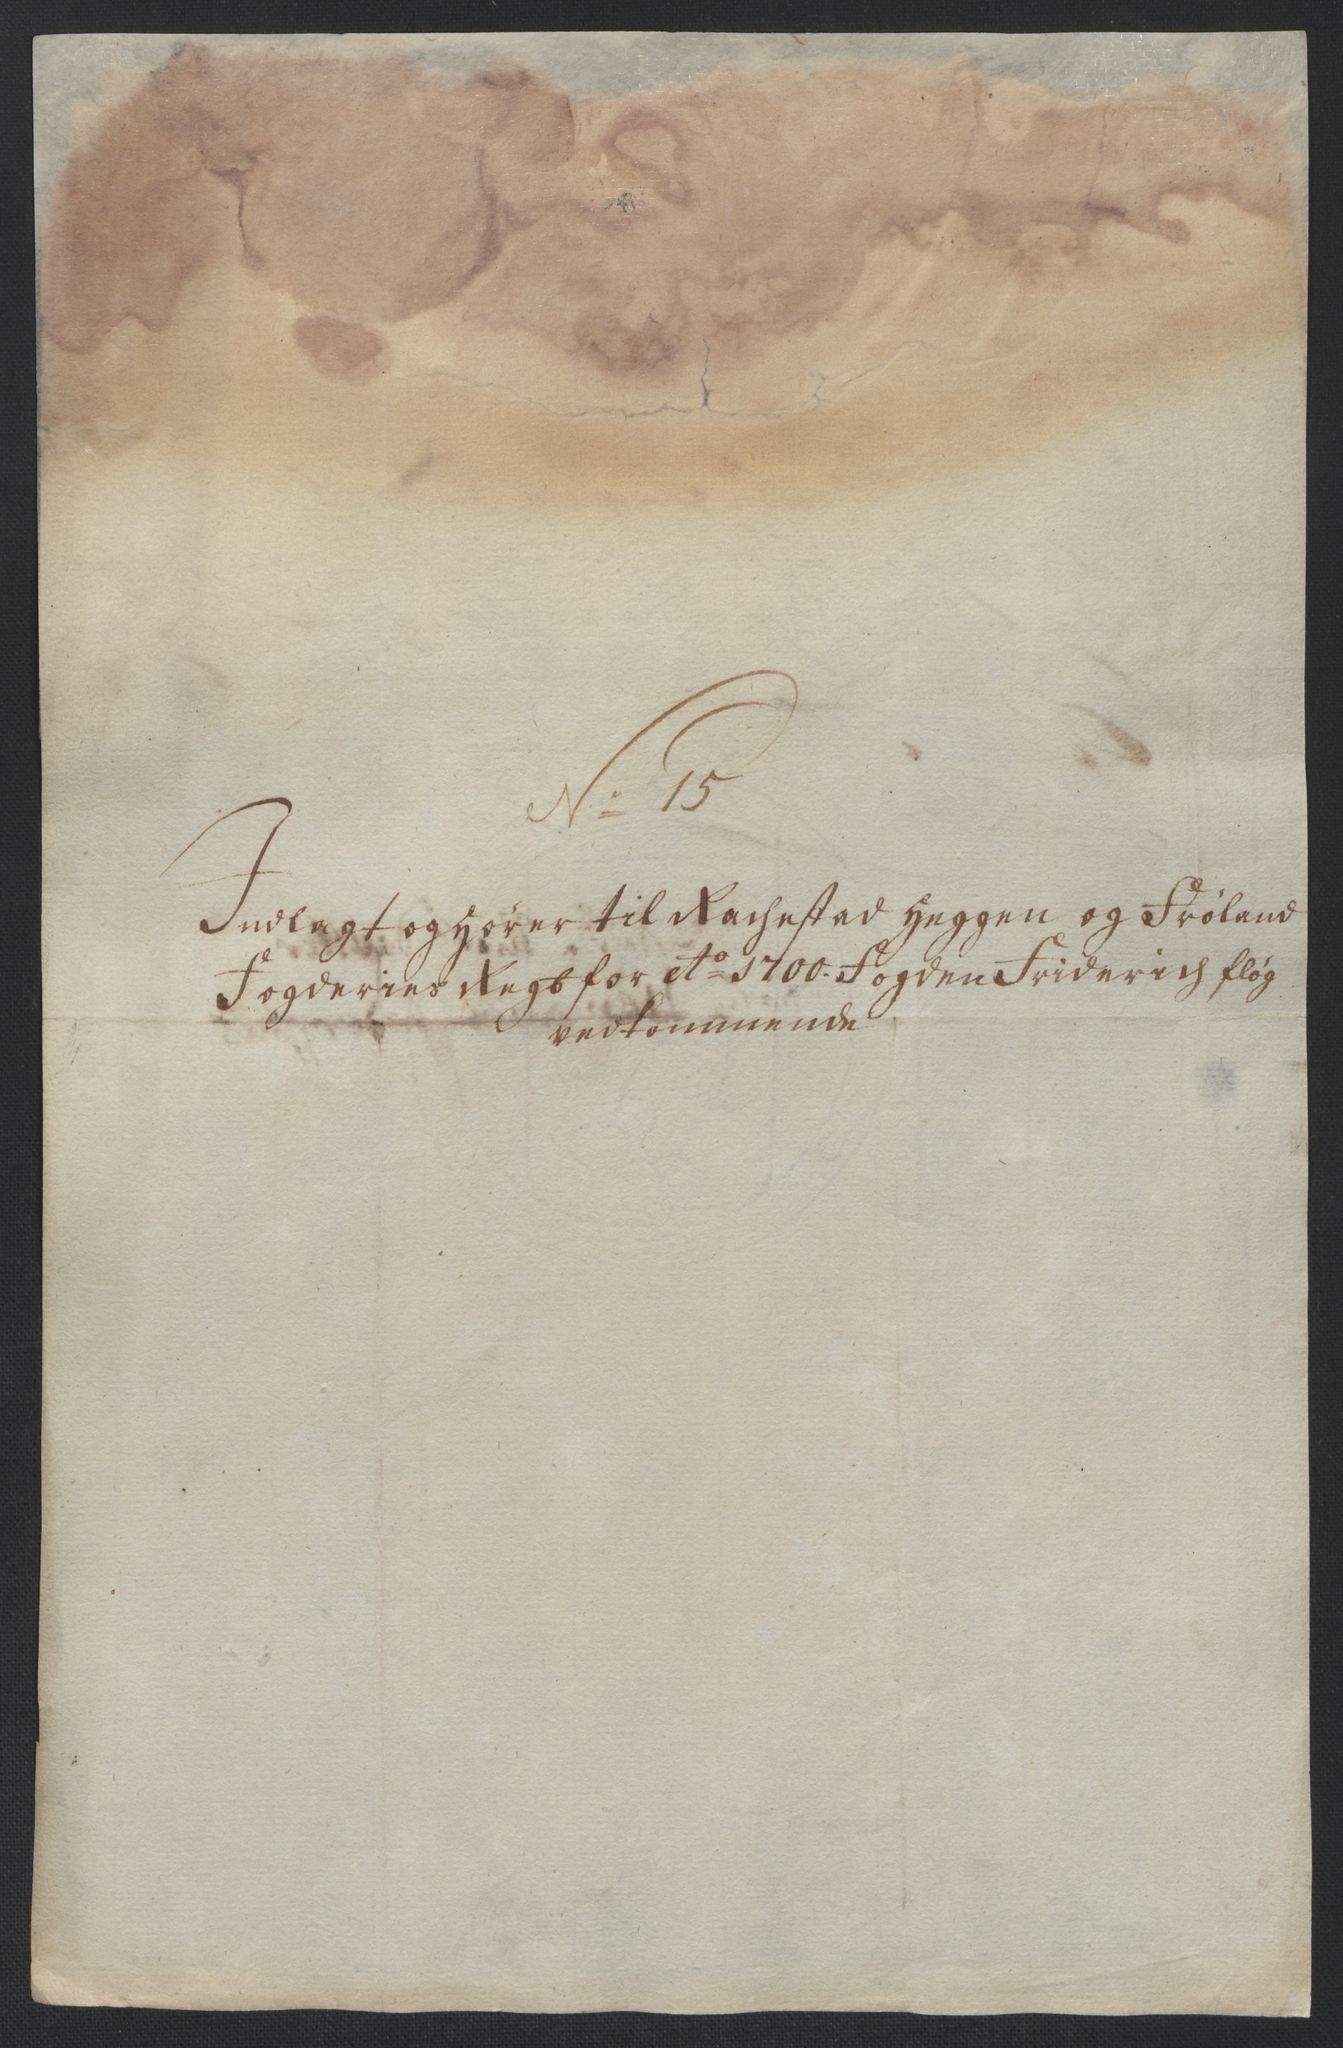 No 15
Indlagt og hører til Rachestad Heggen og Frøland
Fogderies Regb for Ao 1700. Fogden Friderich fløg
vedkommende